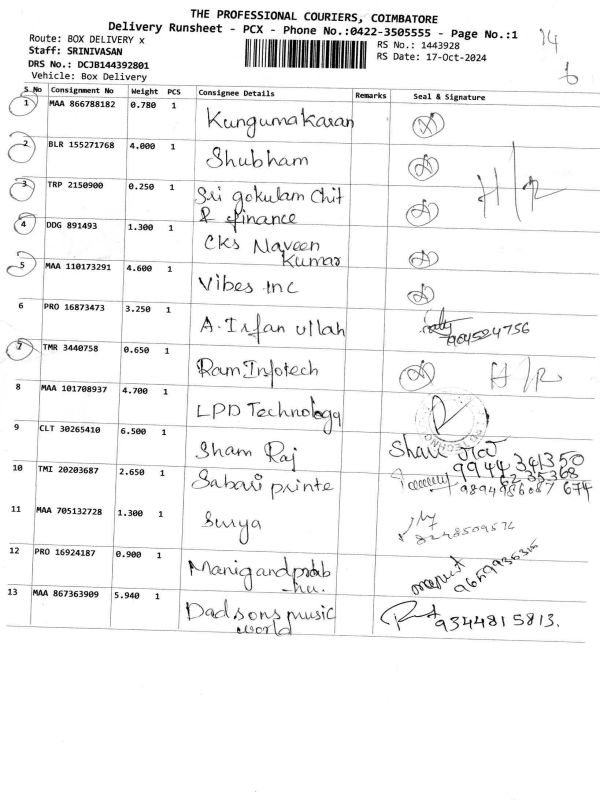 THE PROFESSIONAL COURIERS, COIMBATORE
Delivery Runsheet - PCX - Phone No.:0422-3505555 - Page No.:1
14
Route: BOX DELIVERY x
RS No.: 1443928
Staff: SRINIVASAN
RS Date: 17-Oct-2024
DRS No.: DCJB144392801
Vehicle: Box Delivery
S No Consignment No Weight PCS Consignee Details Remarks Seal & Signature
1 MAA 866788182 0.780 1 Kungumakaran
2 BLR 155271768 4.000 1 Shubham
H/R
3 TRP 2150900 0.250 1 Sri gokulam Chit
& finance
4 DDG 891493 1.300 1 CKS Naveen
Kumar
5 MAA 110173291 4.600 1 Vibes inc
6 PRO 16873473 3.250 1 A. Irfan ullah
7 TMR 3440758 0.650 1 Ram Infotech H/R
8 MAA 101708937 4.700 1 LPD Technology
9 CLT 30265410 6.500 1 Sham Raj
9944 341350
10 TMI 20203687 2.650 1 Sabari printe
11 MAA 705132728 1.300 1 Surya
12 PRO 16924187 0.900 1 Manigandprab
hu.
13 MAA 867363909 5.940 1 Dadsons music
world
9344815813.